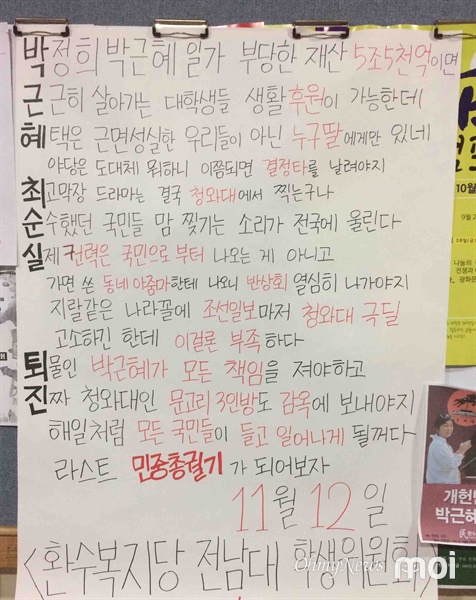 박정희 박근혜 일가 부당한 재산 5조5천억이면
근근히 살아가는 대학생들 생활후원이 가능한데
혜택은 근면성실한 우리들이 아닌 누구딸에게만 있네
야당은 도대체 뭐하니 이쯤되면 결정타를 날려야지
최고막장 드라마는 결국 청와대에서 찍는구나
순수했던 국민들 맘 찢기는 소리가 전국에 울린다
실제 권력은 국민으로부터 나오는 게 아니고
가면 쓴 동네 아줌마한테 나오니 반상회 열심히 나가야지
지랄같은 나라꼴에 조선일보마저 청와대 극딜
고소하긴 한데 이걸론 부족하다
퇴물인 박근혜가 모든 책임을 져야하고
진짜 청와대인 문고리 3인방도 감옥에 보내야지
해일처럼 모든 국민들이 들고 일어나게 될꺼다
라스트 민중총궐기가 되어보자
11월 12일
<환수복지당 전남대 학생위원회>
OhmyNews
moi
10월
개헌
박근혜